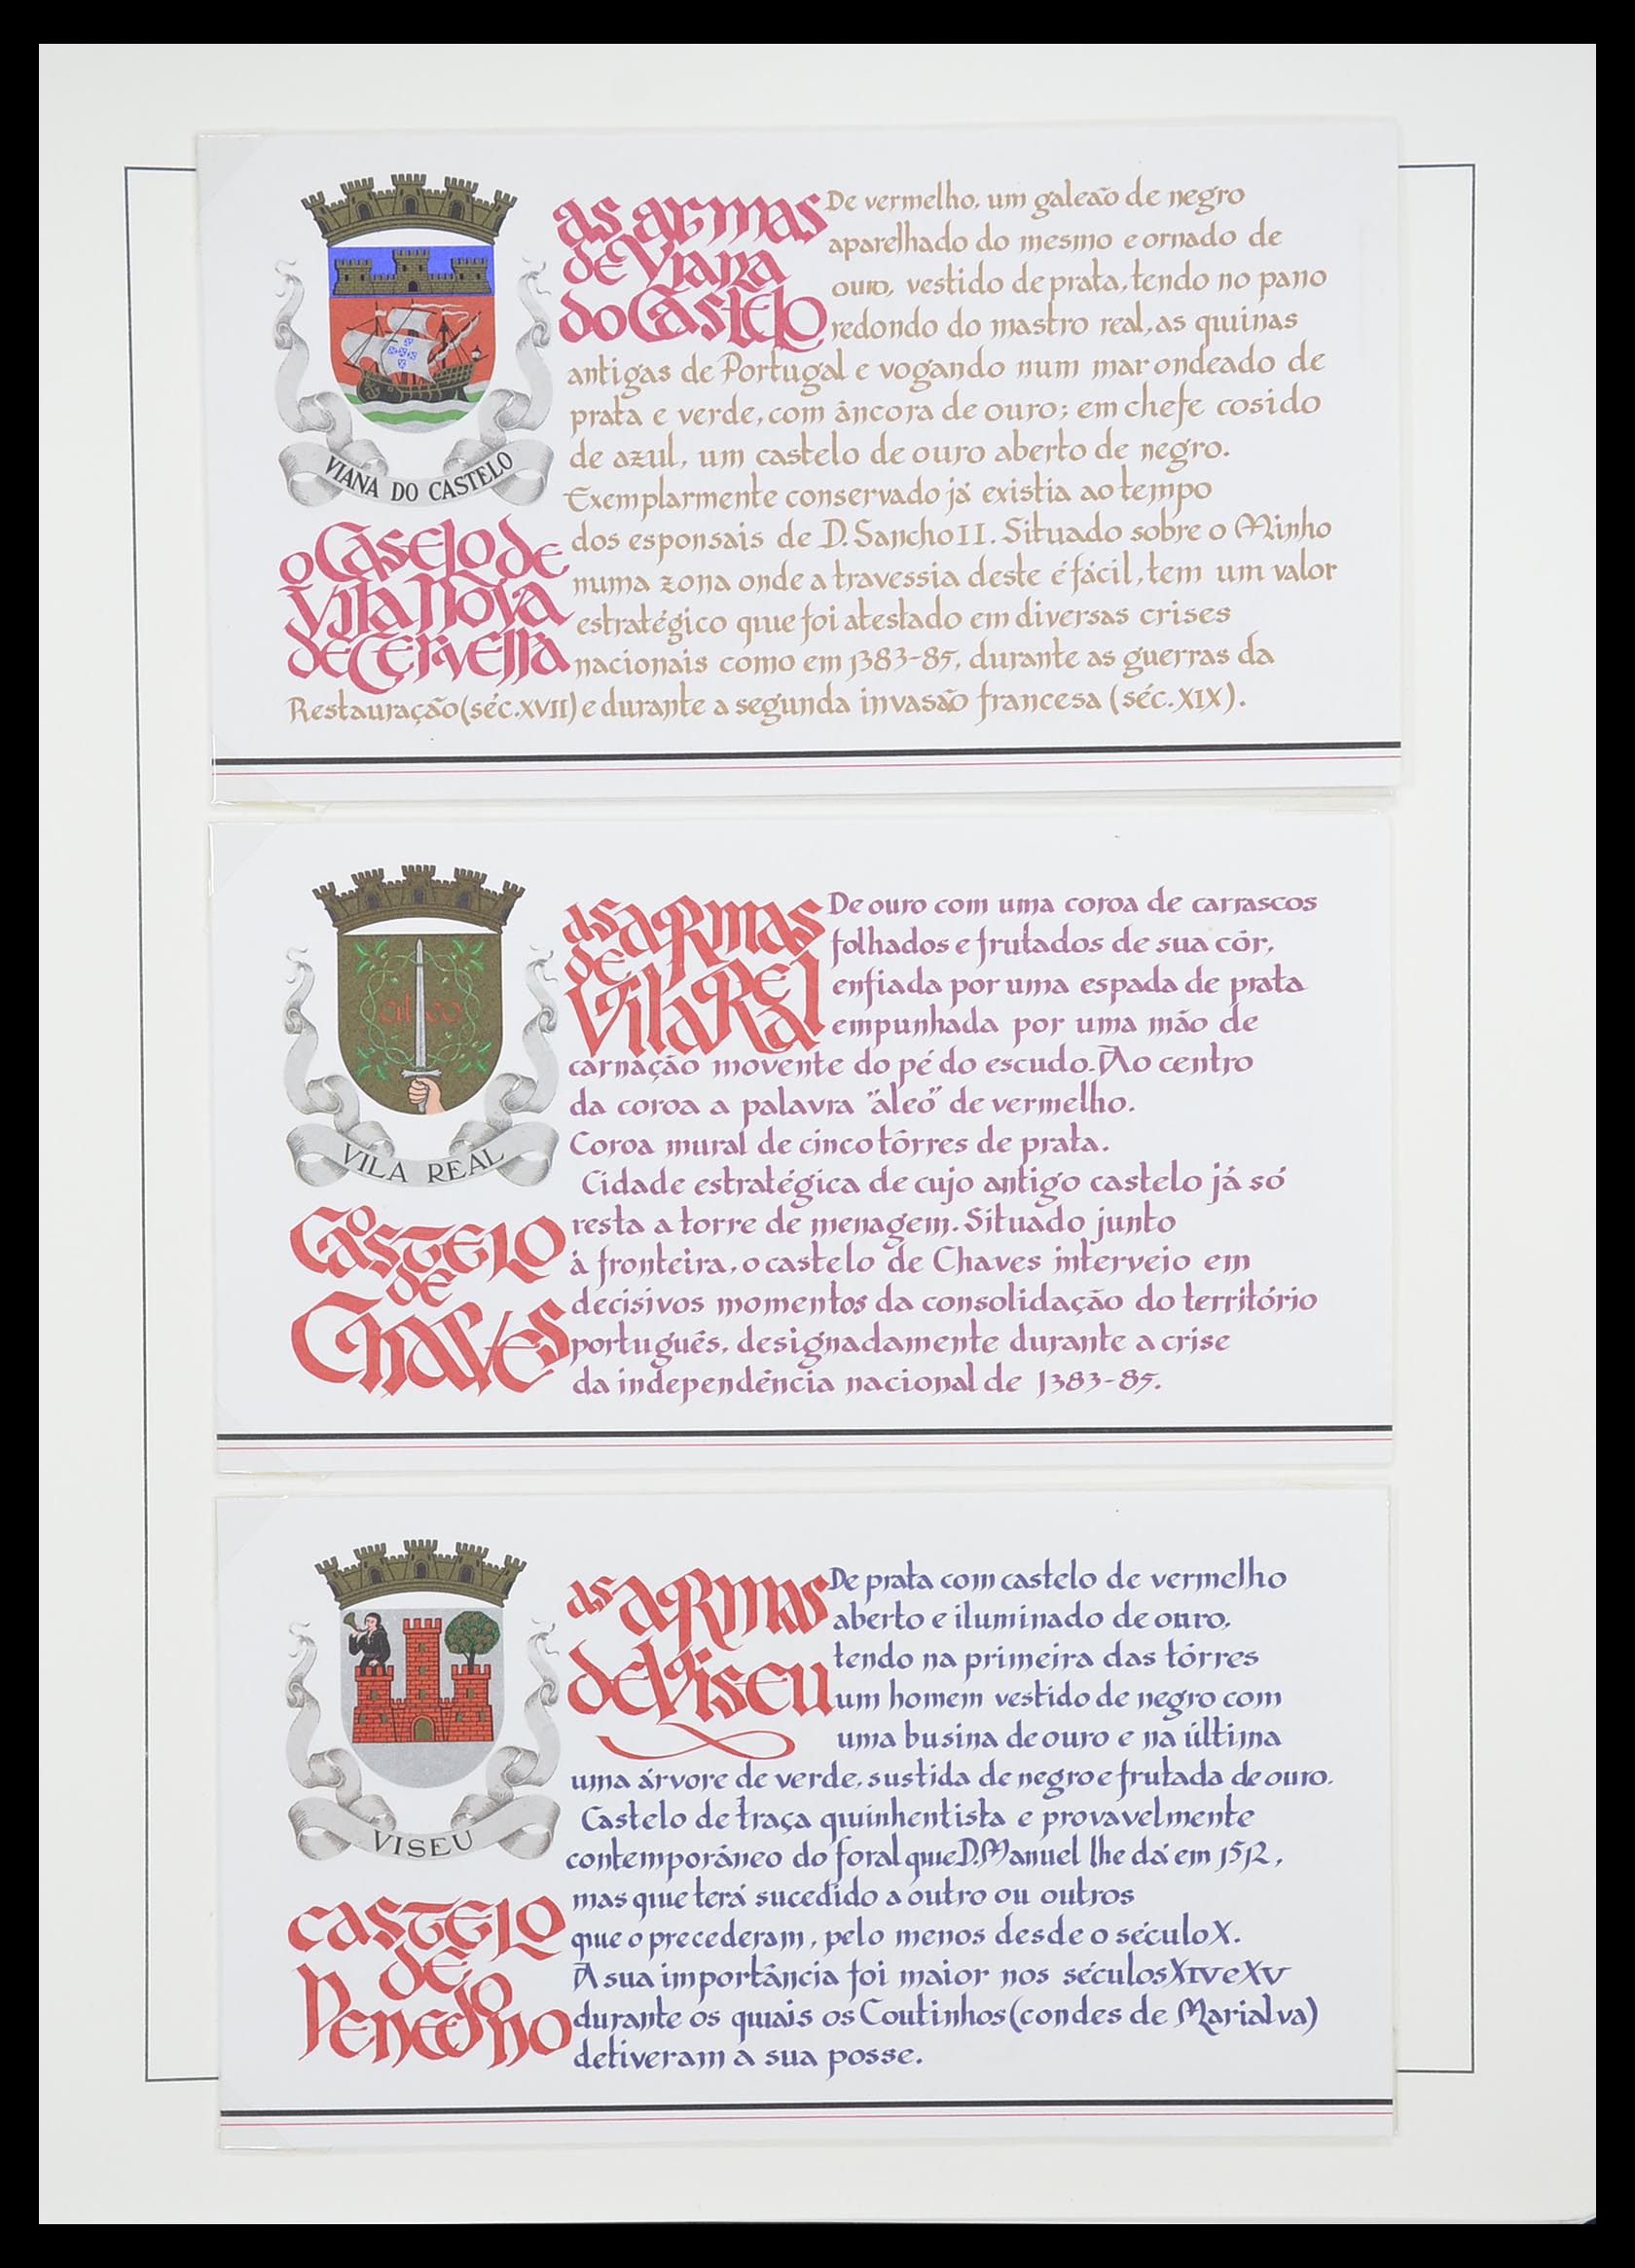 VIANA DO CASTELO
as armas
de Viana
do Castelo
De vermelho, um galeão de negro
aparelhado do mesmo e ornado de
ouro, vestido de prata, tendo no pano
redondo do mastro real, as quinas
antigas de Portugal e vogando num mar ondeado de
prata e verde, com âncora de ouro; em chefe cosido
de azul, um castelo de ouro aberto de negro.
o Castelo de
Vila Nova
de Cerveira
Exemplarmente conservado já existia ao tempo
dos esponsais de D. Sancho II. Situado sobre o Minho
numa zona onde a travessia deste é fácil, tem um valor
estratégico que foi atestado em diversas crises
nacionais como em 1383-85, durante as guerras da
Restauração (séc. XVII) e durante a segunda invasão francesa (séc. XIX).
VILA REAL
as armas
de
Vila Real
De ouro com uma coroa de carrascos
folhados e frutados de sua côr,
enfiada por uma espada de prata
empunhada por uma mão de
carnação movente do pé do escudo. Ao centro
da coroa a palavra "áleo" de vermelho.
Coroa mural de cinco tôrres de prata.
o
Castelo
de
Chaves
Cidade estratégica de cujo antigo castelo já só
resta a torre de menagem. Situado junto
à fronteira, o castelo de Chaves interveio em
decisivos momentos da consolidação do território
português, designadamente durante a crise
da independência nacional de 1383-85.
VISEU
as armas
de Viseu
De prata com castelo de vermelho
aberto e iluminado de ouro,
tendo na primeira das tôrres
um homem vestido de negro com
uma busina de ouro e na última
uma árvore de verde, sustida de negro e frutada de ouro.
castelo
de
Penedono
Castelo de traça quinhentista e provavelmente
contemporâneo do foral que D. Manuel lhe dá em 1512,
mas que terá sucedido a outro ou outros
que o precederam, pelo menos desde o século X.
A sua importância foi maior nos séculos XIV e XV
durante os quais os Coutinhos (condes de Marialva)
detiveram a sua posse.